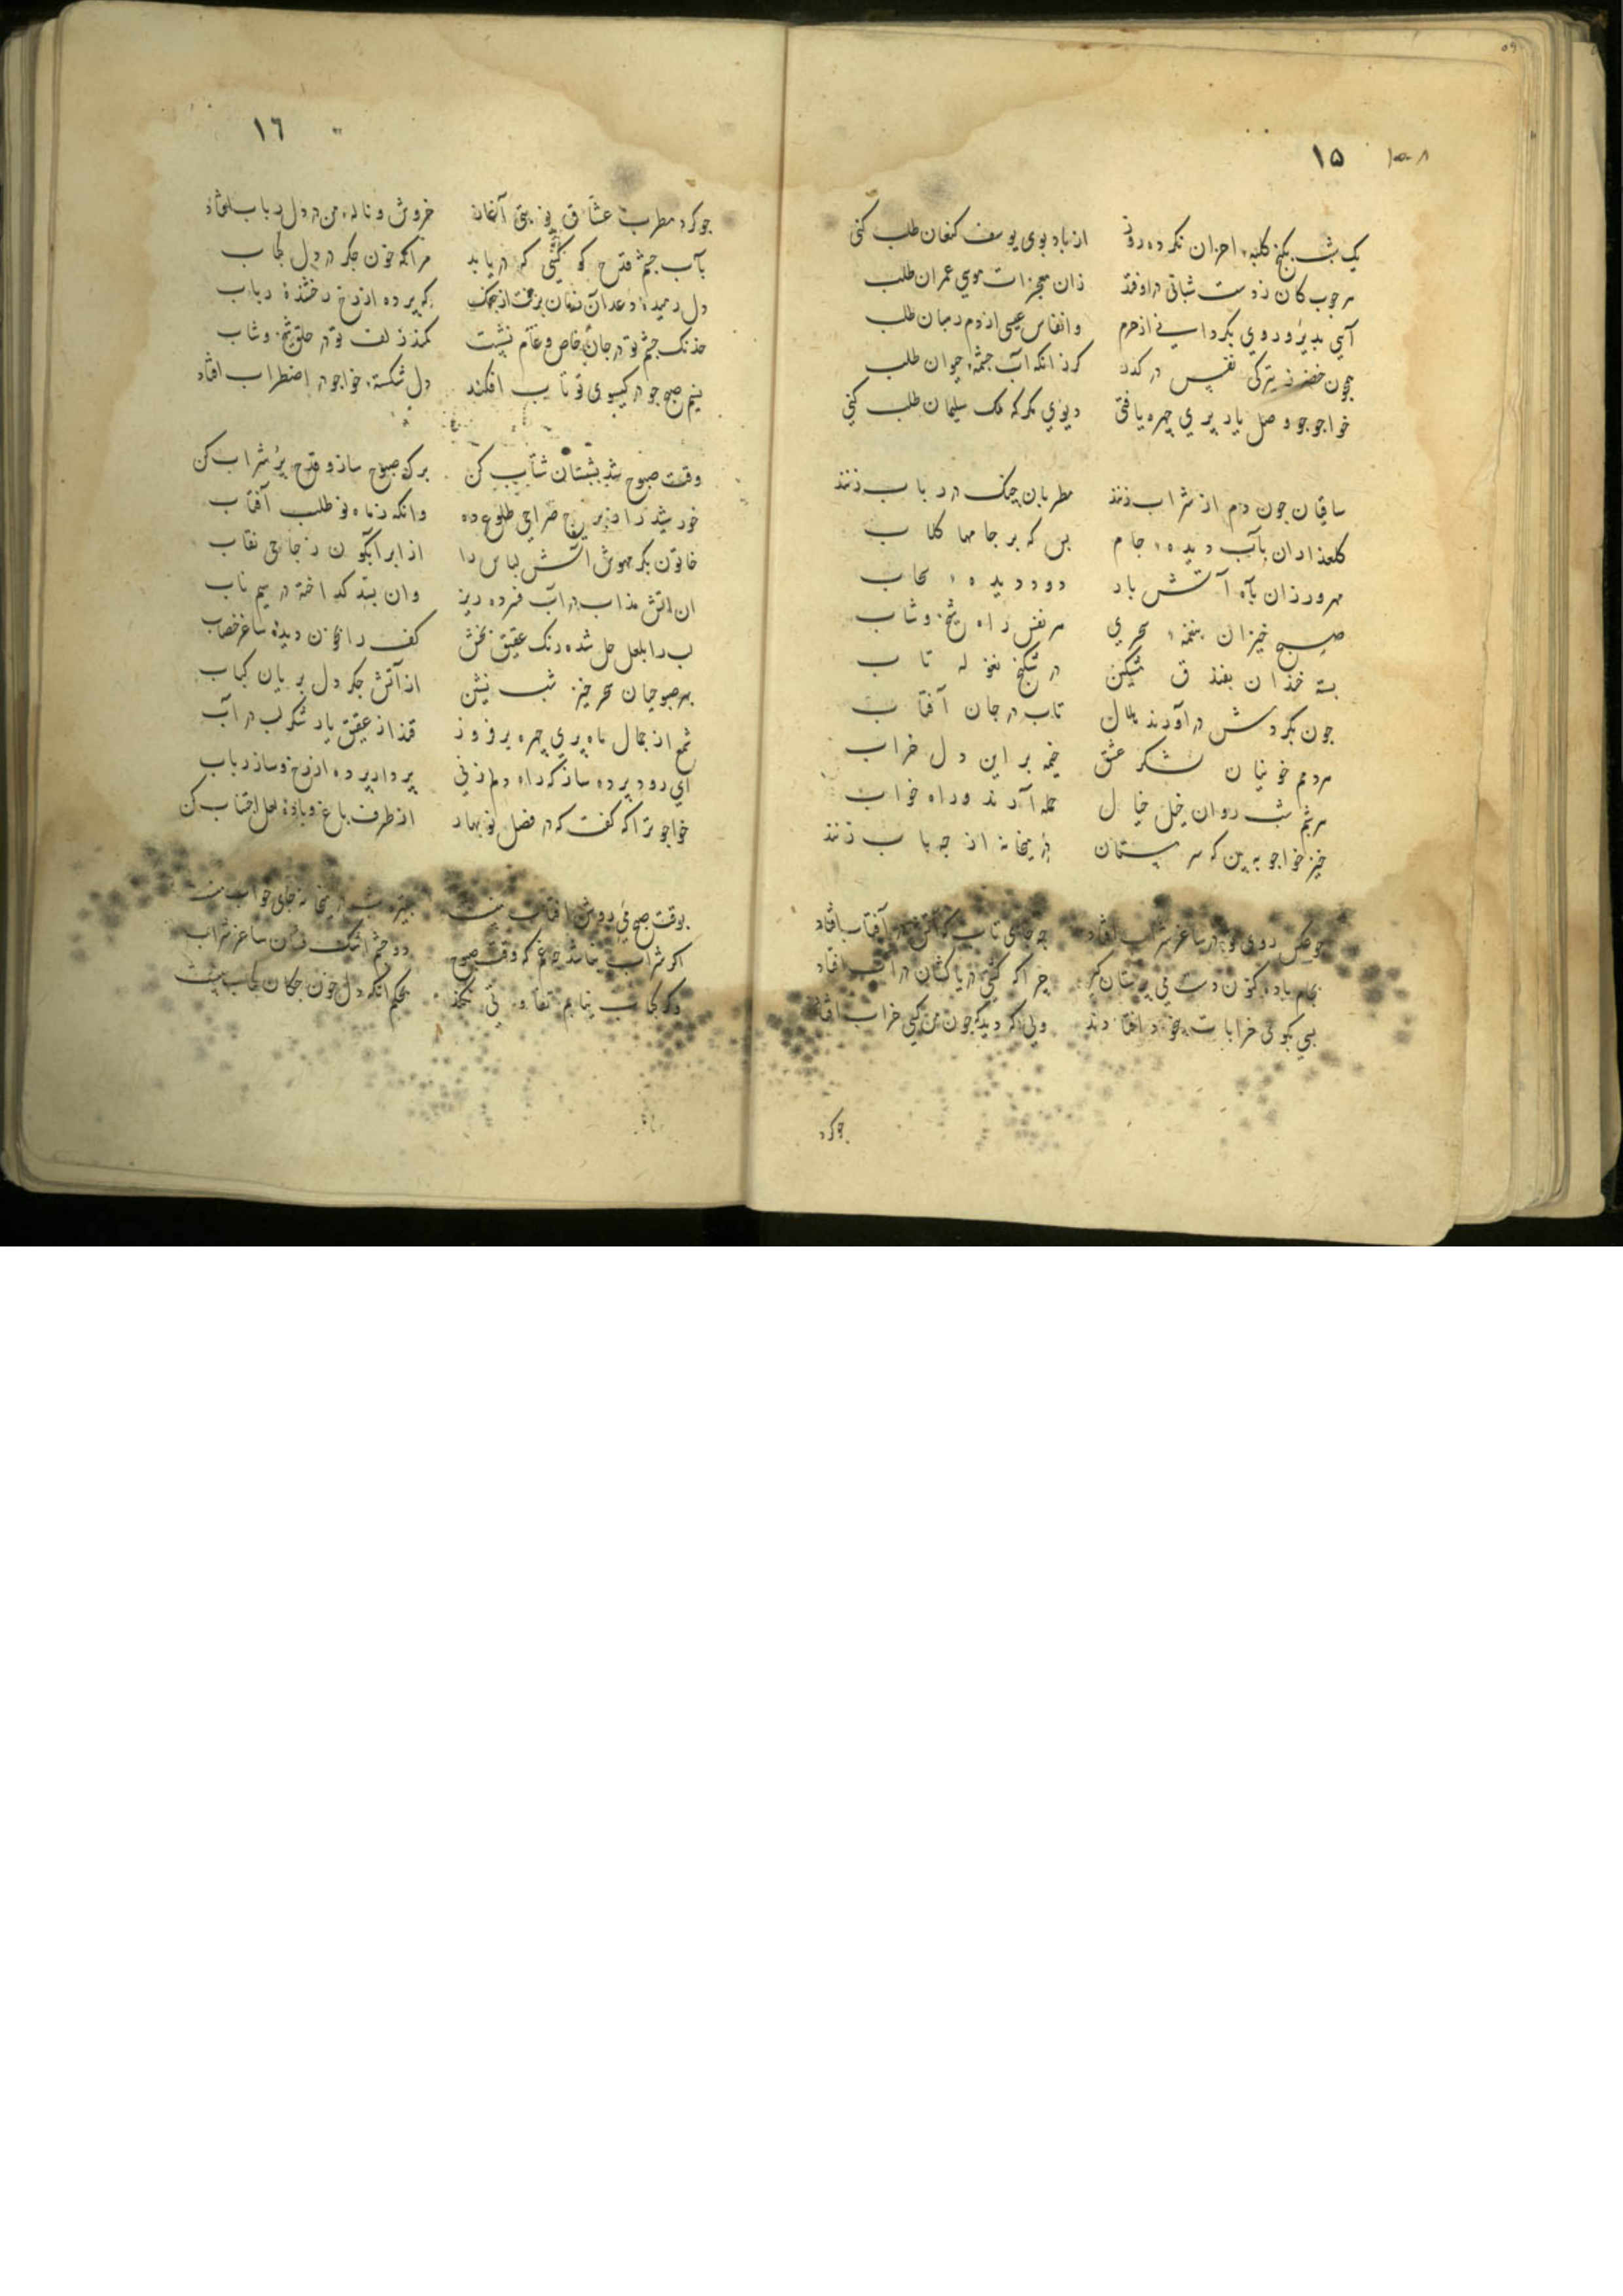 ۱۵
یک شب بکنج کلبهٔ احزان نکرده روی از باد بوی یوسف کنعان طلب کنی
هر چوب کان ز دست شبانی در اوفتد زان معجزات موسی عمران طلب
آیی بدیر و روی بگردانی از حرم وانفاس عیسی از دم رهبان طلب
همچون خضر ز تیرگی نفس در گذر گر زانکه آب چشمهٔ حیوان طلب
خواجو چو وصل یار پری چهره یافتی دیوی مگر که ملک سلیمان طلب کنی
ساقیان چون دم از شراب زنند مطربان چنگ در رباب زنند
گلعذاران بآب دیدهٔ جام بس که بر جامها گلاب
مهرورزان بآه آتش بار دود در دیدهٔ سحاب
صبح خیزان بنغمهٔ سحری هر نفس راه شیخ و شاب
بسته خندان بفندق مشکین در شکنج نغوله تاب
چون بگردش درآورند هلال تاب در جان آفتاب
مردم خونیان لشکر عشق خیمه بر این دل خراب
هر شبم شب روان خیل خیال حمله آرند و راه خواب
خیز خواجو ببین که سرمستان در میخانه از چه باب زنند
چو عکس روی تو در ساغر شراب افتاد چه جای تاب که آتش در آفتاب افتاد
بجام باده کنون دست می پرستان گیر چرا که کشتی دریا کشان در آب افتاد
بسی بکوی خرابات بیخود افتادند ولی که دیده که چون من کسی خراب افتاد
چو کرد
۱٦
چو کرد مطرب عشاق نوبتی آغاز خروش و نالهٔ من در دل رباب افتاد
بآب چشم قدح کو کسی که دریابد مرا که خون جگر در دل کباب
دل رمیدهٔ دعد آن زمان برفت از چنگ که پرده از رخ رخشندهٔ رباب
خدنگ چشم تو در جان خاص و عام نشست کمند زلف تو در حلق شیخ و شاب
نسیم صبح چو در گیسوی تو تاب افکند دل شکستهٔ خواجو در اضطراب افتاد
وقت صبوح شد بشبستان شتاب کن برگ صبوح ساز و قدح پر شراب کن
خورشید را ز برج صراحی طلوع ده وانگه ز ماه نو طلب آفتاب
خاتون بکر مهوش آتش لباس را از ابر آبگون زجاجی نقاب
آن آتش مذاب در آب فسرده ریز وان بسد گداخته در سیم ناب
لب را بلعل حل شده رنگ عقیق بخش کف را بخون دیدهٔ ساغر خضاب
بهر صبوحیان سحر خیز شب نشین از آتش جگر دل بریان کباب
شمع از جمال ماه پری چهره برفروز قند از عقیق یار شکر لب در آب
ای رود پرده ساز که راه دلم زنی بردار پرده از رخ و ساز رباب
خواجو ترا که گفت که در فصل نوبهار از طرف باغ و بادهٔ لعل اجتناب کن
بوقت صبح می روشن آفتاب منست
اگر شراب نباشد چه غم که وقت صبوح دو چشم اشک فشان ساغر شراب
وگر کباب نیابم تفاوتی نکند بحکم آنکه دل خون چکان کباب منست